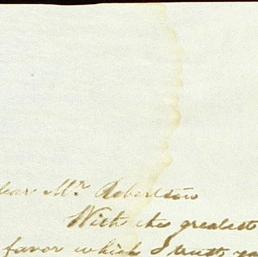 ear Mr Robertson
With the greatest
favor which I trust